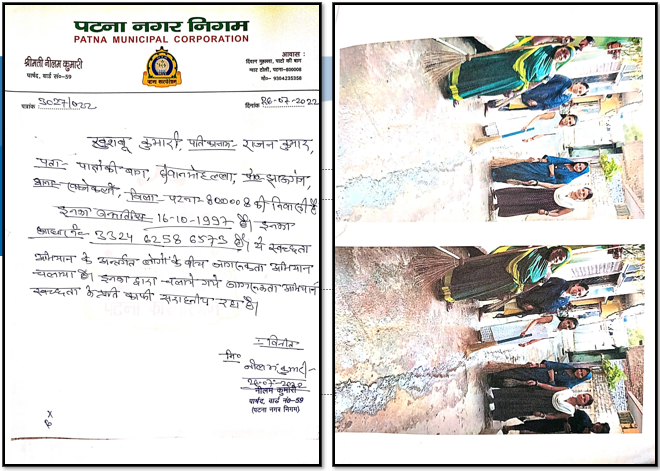 पटना नगर निगम
PATNA MUNICIPAL CORPORATION
श्रीमती नीलम कुमारी
पार्षद, वार्ड सं०-59
आवास :
दिवान मुहल्ला, पाटो की बाग
पटना-800008
मो०- 9304235358
पत्रांक 3027/022
दिनांक 26-07-2022
खुशबू कुमारी, पति राजन कुमार,
पता- बाग, झाऊगंज,
जिला- पटना- 800008 की निवासी है
इनका जन्मतिथि 16-10-1997 है। इनका
आधार नं०- 3324 6258 6573 है। ये स्वच्छता
अभियान के अन्तर्गत लोगों के बीच जागरूकता अभियान
चलाया है। इनका द्वारा चलाये गये जागरूकता अभियान
स्वच्छता के प्रति काफी सराहनीय रहा है।
नीलम कुमारी
26-07-2022
नीलम कुमारी
पार्षद, वार्ड सं०-59
(पटना नगर निगम)